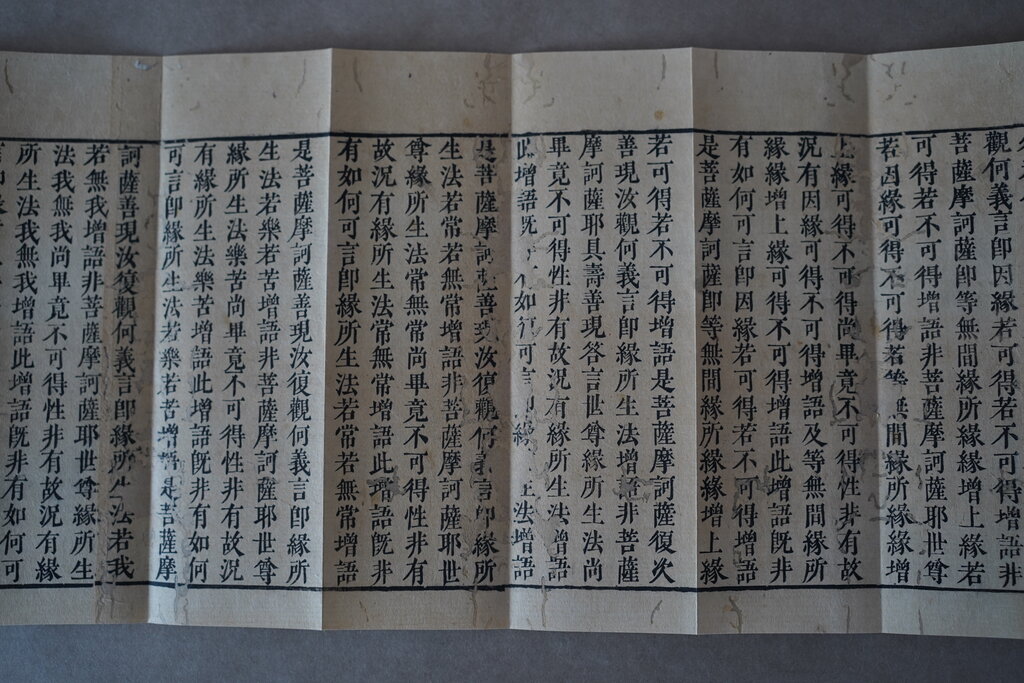 觀何義言即因緣若可得若不可得增語非
菩薩摩訶薩即等無間緣所緣緣增上緣若
可得若不可得增語非菩薩摩訶薩耶世尊
若因緣可得不可得若等無間緣所緣緣增
上緣可得不可得尚畢竟不可得性非有故
況有因緣可得不可得增語及等無間緣所
緣緣增上緣可得不可得增語此增語旣非
有如何可言即因緣若可得若不可得增語
是菩薩摩訶薩即等無間緣所緣緣增上緣
若可得若不可得增語是菩薩摩訶薩復次
善現汝觀何義言即緣所生法增語非菩薩
摩訶薩耶具壽善現答言世尊緣所生法尚
畢竟不可得性非有故況有緣所生法增語
此增語旣如何可言即緣生法增語
是菩薩摩訶薩善現汝復觀何義言即緣所
生法若常若無常增語非菩薩摩訶薩耶世
尊緣所生法常無常尚畢竟不可得性非有
故況有緣所生法常無常增語此增語旣非
有如何可言即緣所生法若常若無常增語
是菩薩摩訶薩善現汝復觀何義言即緣所
生法若樂若苦增語非菩薩摩訶薩耶世尊
緣所生法樂苦尚畢竟不可得性非有故況
有緣所生法樂苦增語此增語旣非有如何
可言即緣所生法若樂若苦增語是菩薩摩
訶薩善現汝復觀何義言即緣所生法若我
若無我增語非菩薩摩訶薩耶世尊緣所生
法我無我尚畢竟不可得性非有故況有緣
所生法我無我增語此增語旣非有如何可